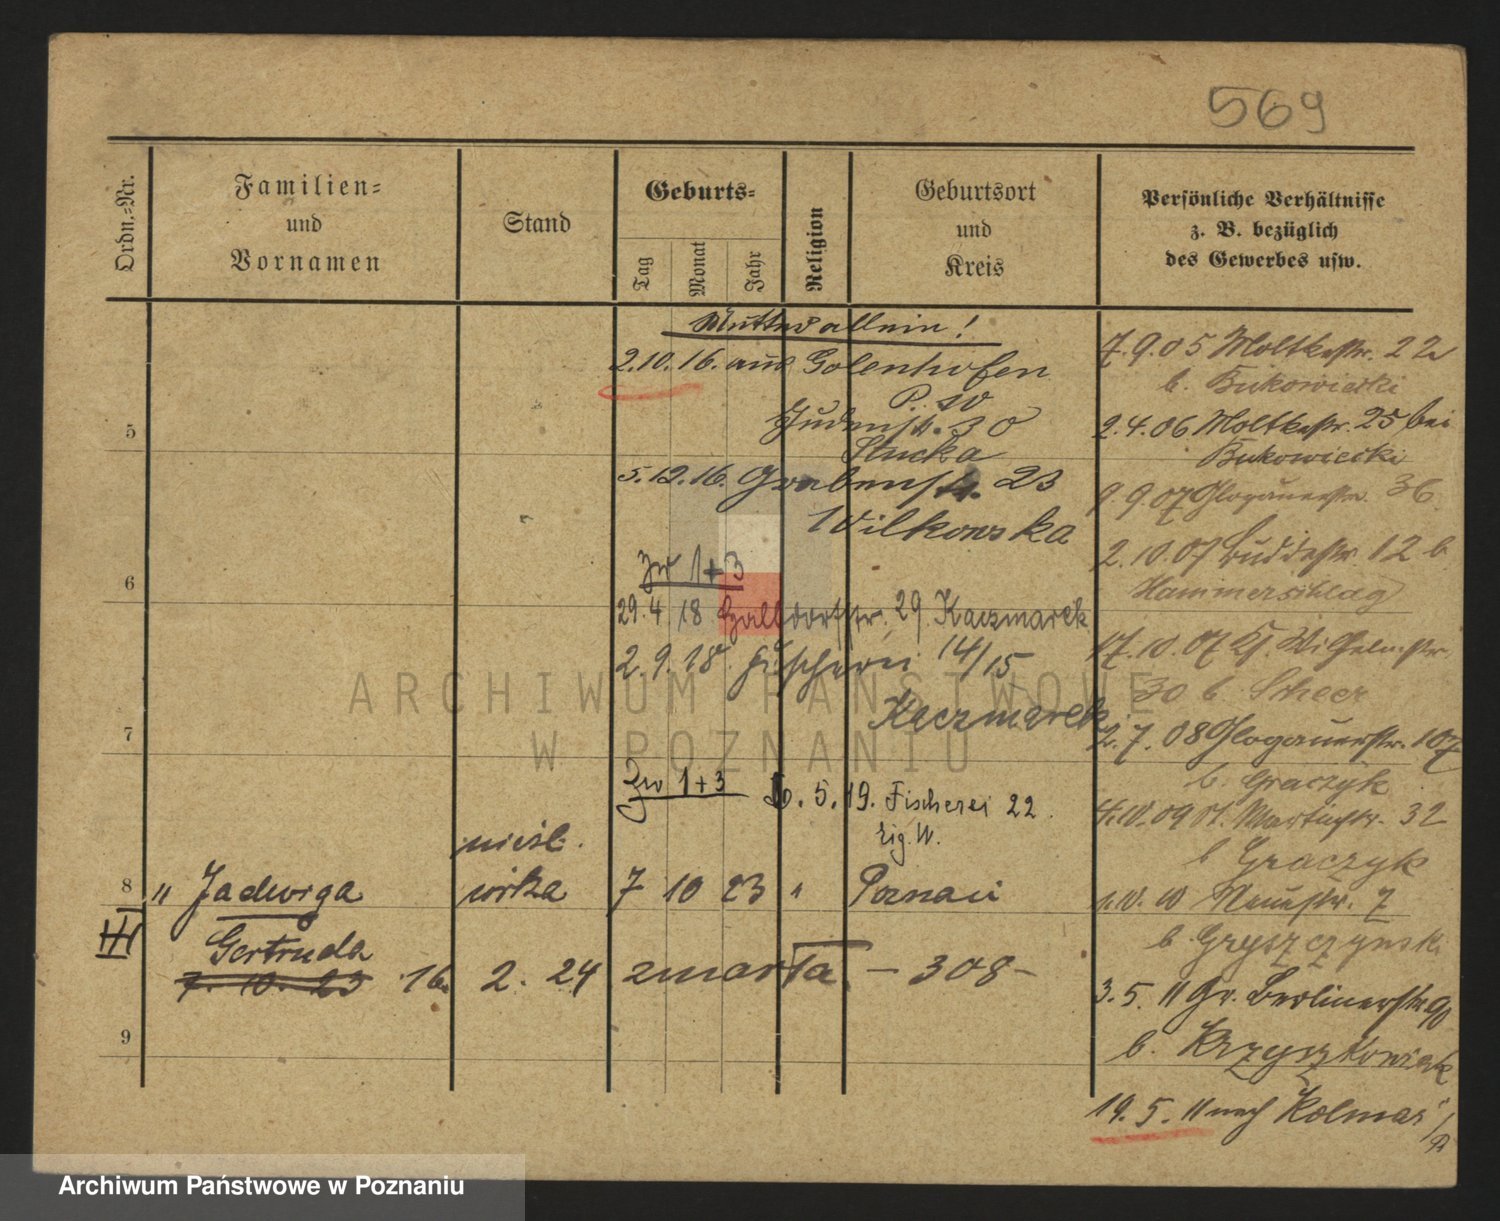 569
Ordn.=Nr.
Familien=
und
Vornamen
Stand
Geburts=
Tag
Monat
Jahr
Religion
Geburtsort
und
Kreis
Persönliche Verhältnisse
z. B. bezüglich
des Gewerbes usw.
Mutter allein!
2.10.16. aus Golenhofen
P. W
Judenstr. 30
Stucka
5.12.16. Grabenstr. 23
Wilkowska
zw 1+3
29. 4 18 Halbdorfstr. 29. Kaczmarek
2. 9. 18. Fischerei 14/15
Kaczmarek
Zw 1+3
5. 19. Fischerei 22.
Zig. W.
5
6
7
8
9
nieśl.
" Jadwiga wrka 7 10 23 " Poznań
III
Gertruda
7. 10. 23 16. 2. 24 zmarła - 308 -
7. 9. 05 Moltkestr. 22
b. Bukowiecki
2. 4. 06 Moltkestr. 25 bei
Bukowiecki
9. 9. 07 Glogauerstr. 36
2. 10. 07 Buddestr. 12 b
Hammerschlag
17. 10. 07 Wilhelmstr.
30 b. Scheer
2. 7. 08 Glogauerstr. 107
b. Graczyk
4. 10. 09 St. Martinstr. 32
b Graczyk
1. 10. 10 Neuestr. 7
b Gryszczynski
3. 5. 11 Gr. Berlinerstr 90
b. Krzyszkowiak
19. 5. 11 nach Kolmar i/P
ARCHIWUM PAŃSTWOWE
W POZNANIU
Archiwum Państwowe w Poznaniu